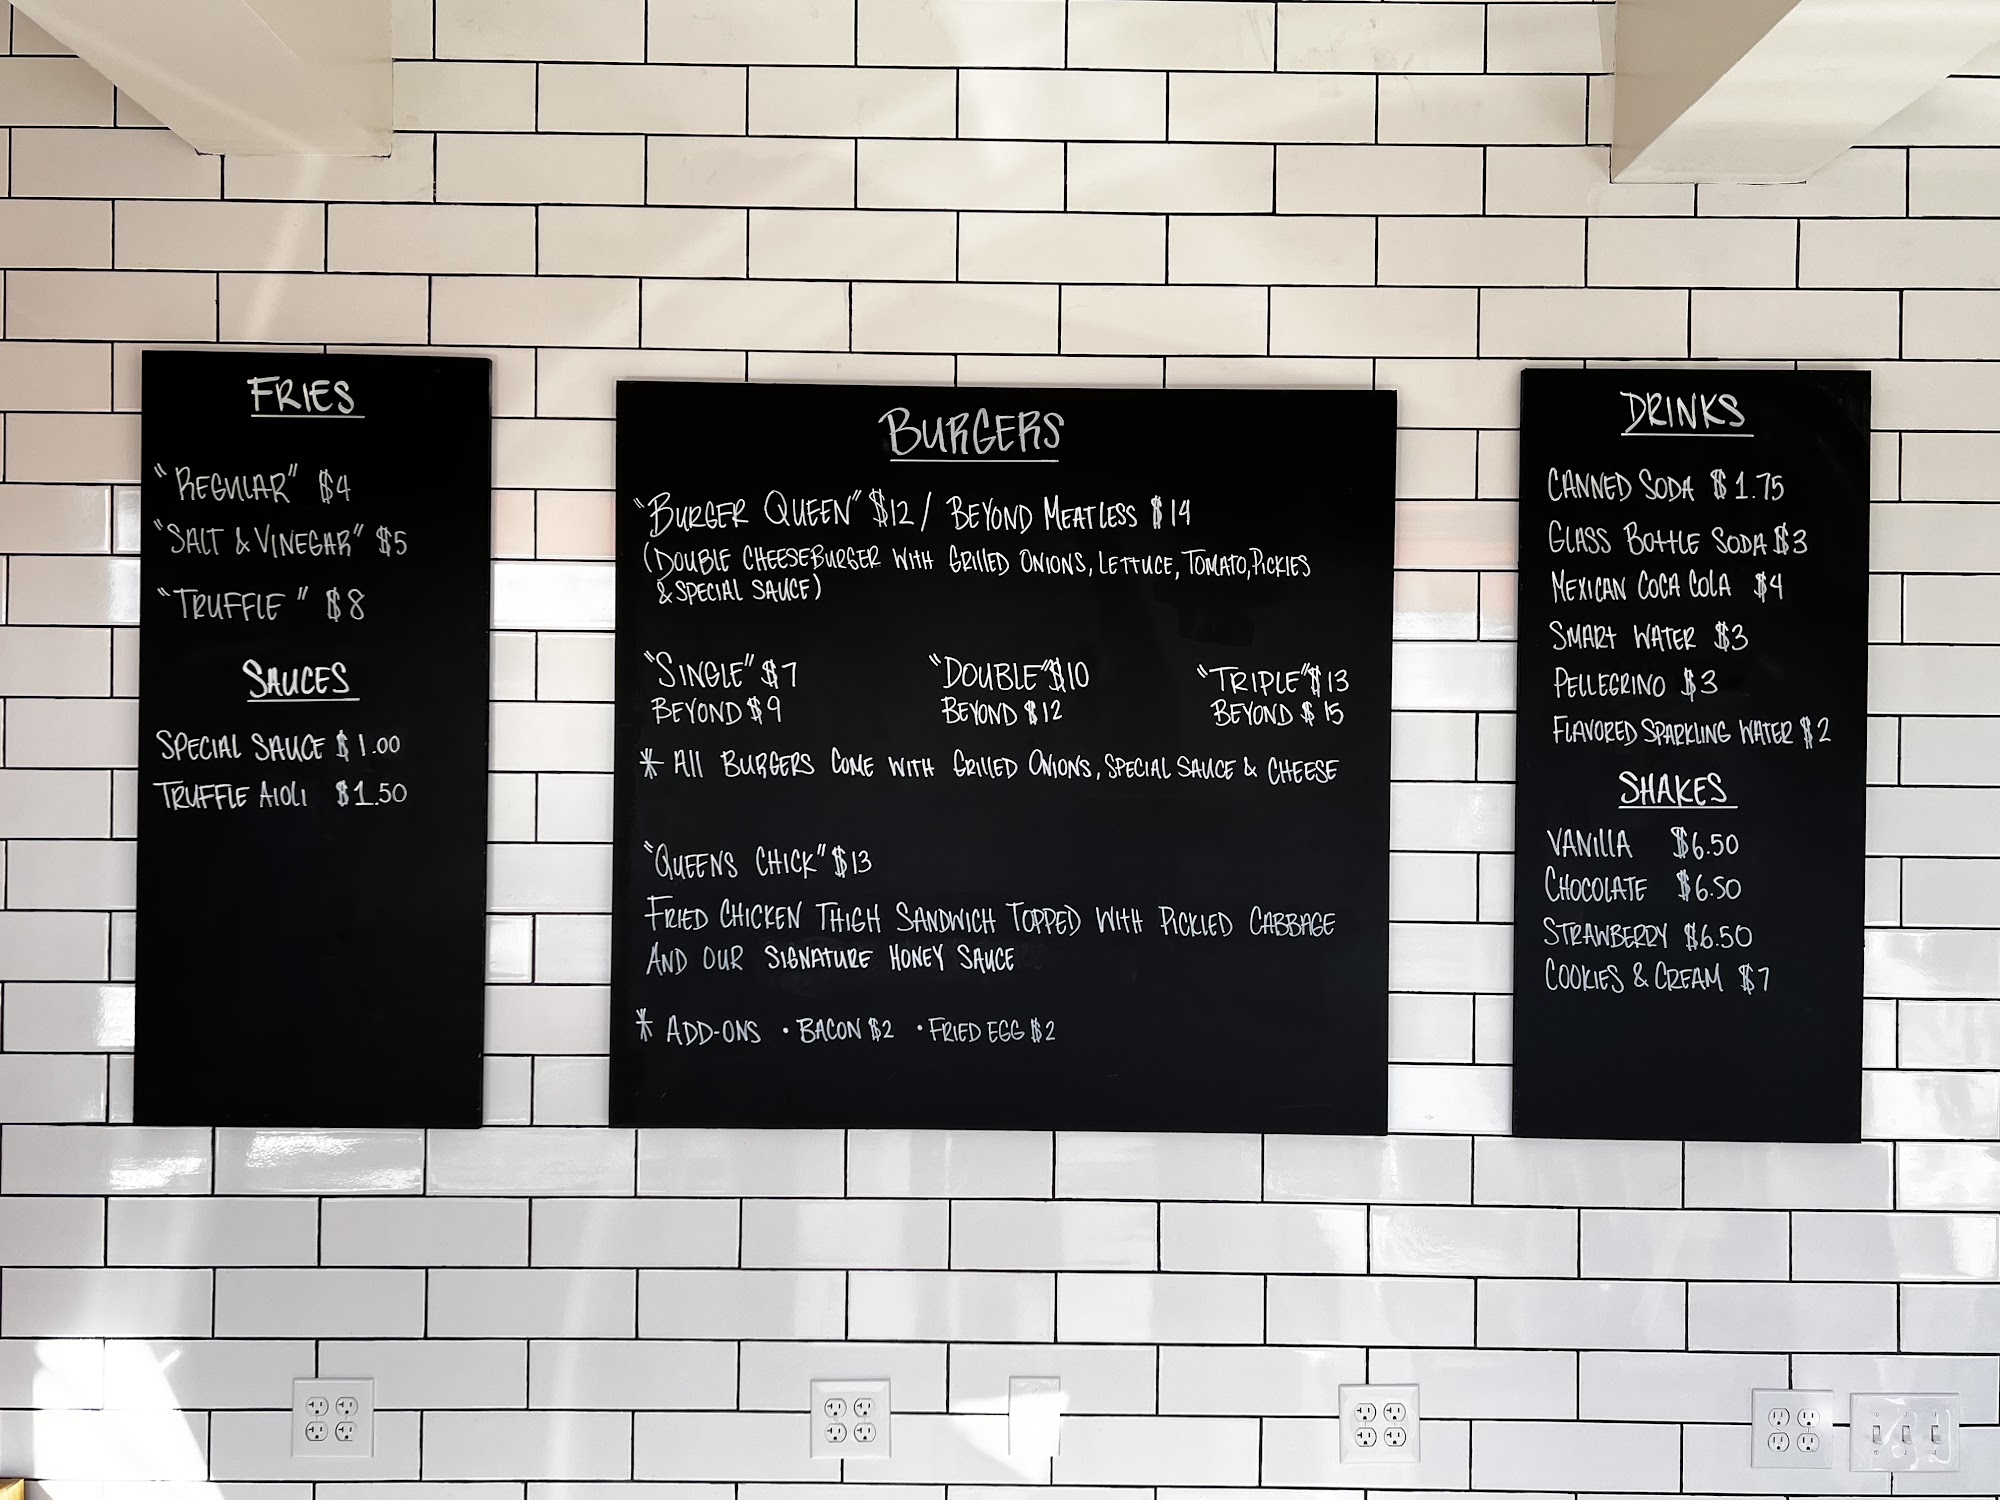 FRIES
"REGULAR" $4
"SALT & VINEGAR" $5
"TRUFFLE" $8
SAUCES
SPECIAL SAUCE $1.00
TRUFFLE AIOLI $1.50
BURGERS
"BURGER QUEEN" $12 / BEYOND MEATLESS $14
(DOUBLE CHEESEBURGER WITH GRILLED ONIONS, LETTUCE, TOMATO, PICKLES
& SPECIAL SAUCE)
"SINGLE" $7 "DOUBLE" $10 "TRIPLE" $13
BEYOND $9 BEYOND $12 BEYOND $15
* All BURGERS COME WITH GRILLED ONIONS, SPECIAL SAUCE & CHEESE
"QUEENS CHICK" $13
FRIED CHICKEN THIGH SANDWICH TOPPED WITH PICKLED CABBAGE
AND OUR SIGNATURE HONEY SAUCE
* ADD-ONS • BACON $2 • FRIED EGG $2
DRINKS
CANNED SODA $1.75
GLASS BOTTLE SODA $3
MEXICAN COCA COLA $4
SMART WATER $3
PELLEGRINO $3
FLAVORED SPARKLING WATER $2
SHAKES
VANILLA $6.50
CHOCOLATE $6.50
STRAWBERRY $6.50
COOKIES & CREAM $7